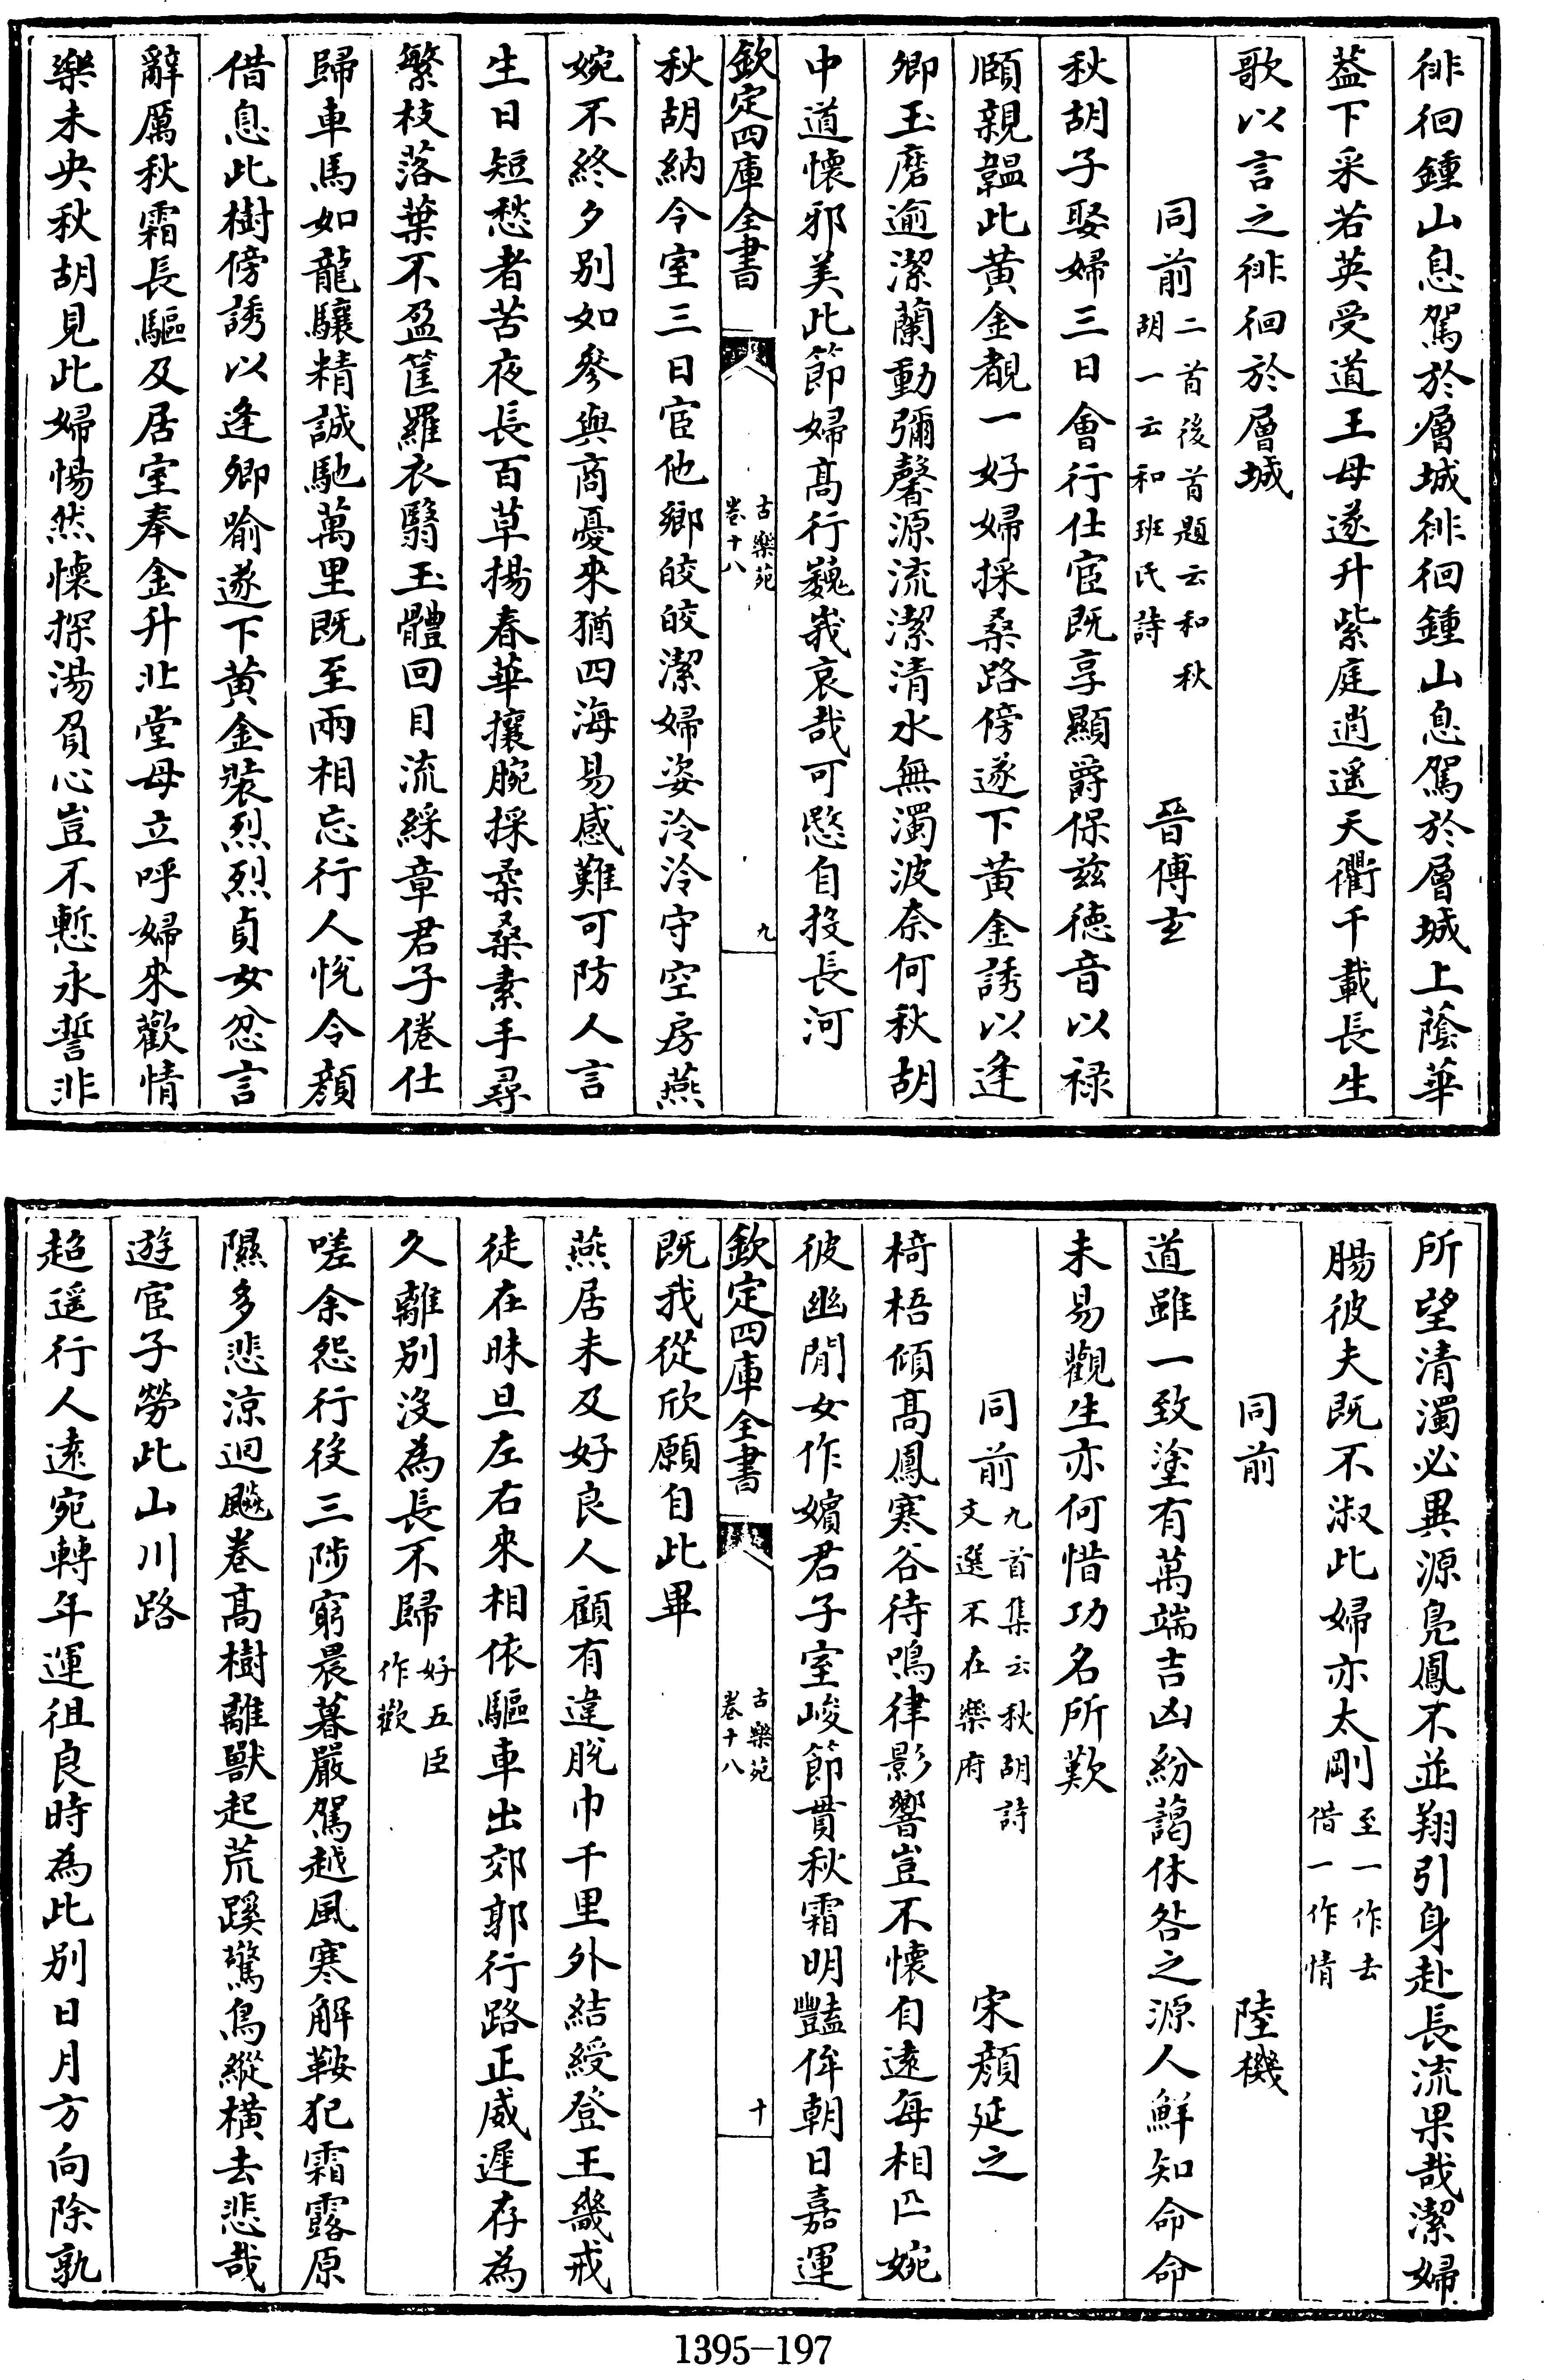 徘徊鍾山息駕於層城徘徊鍾山息駕於層城上蔭華
葢下采若英受道王母遂升紫庭逍遥天衢千載長生
歌以言之徘徊於層城
同前二首後首題云和秋胡一云和班氏詩 晉傅玄
秋胡子娶婦三日會行仕宦既享顯爵保兹德音以禄
頤親韞此黄金覩一好婦採桑路傍遂下黄金誘以逢
卿玉磨逾潔蘭動彌馨源流潔清水無濁波奈何秋胡
中道懷邪美此節婦髙行巍峩哀哉可愍自投長河
欽定四庫全書 古樂苑 卷十八 九
秋胡納令室三日宦他鄉皎皎潔婦姿泠泠守空房燕
婉不終夕别如參與商憂來猶四海易感難可防人言
生日短愁者苦夜長百草揚春華攘腕採柔桑素手尋
繁枝落葉不盈筐羅衣翳玉體回目流綵章君子倦仕
歸車馬如龍驤精誠馳萬里既至兩相忘行人悦令顔
借息此樹傍誘以逢卿喻遂下黄金裝烈烈貞女忿言
辭厲秋霜長驅及居室奉金升北堂母立呼婦來歡情
樂未央秋胡見此婦惕然懷探湯負心豈不慙永誓非
所望清濁必異源鳬鳳不並翔引身赴長流果哉潔婦
腸彼夫既不淑此婦亦太剛至一作去借一作情
同前 陸機
道雖一致塗有萬端吉凶紛藹休咎之源人鮮知命命
未易觀生亦何惜功名所歎
同前九首集云秋胡詩文選不在樂府 宋顔延之
椅梧傾髙鳳寒谷待鳴律影響豈不懷自逺每相匹婉
彼幽閒女作嬪君子室峻節貫秋霜明豔侔朝日嘉運
欽定四庫全書 古樂苑 卷十八 十
既我從欣願自此畢
燕居未及好良人顧有違脱巾千里外結綬登王畿戒
徒在昧旦左右來相依驅車出郊郭行路正威遲存為
久離别没為長不歸好五臣作歡
嗟余怨行役三陟窮晨暮嚴駕越風寒解鞍犯霜露原
隰多悲涼迴飈卷髙樹離獸起荒蹊驚鳥縱横去悲哉
遊宦子勞此山川路
超遥行人逺宛轉年運徂良時為此别日月方向除孰
1395-197